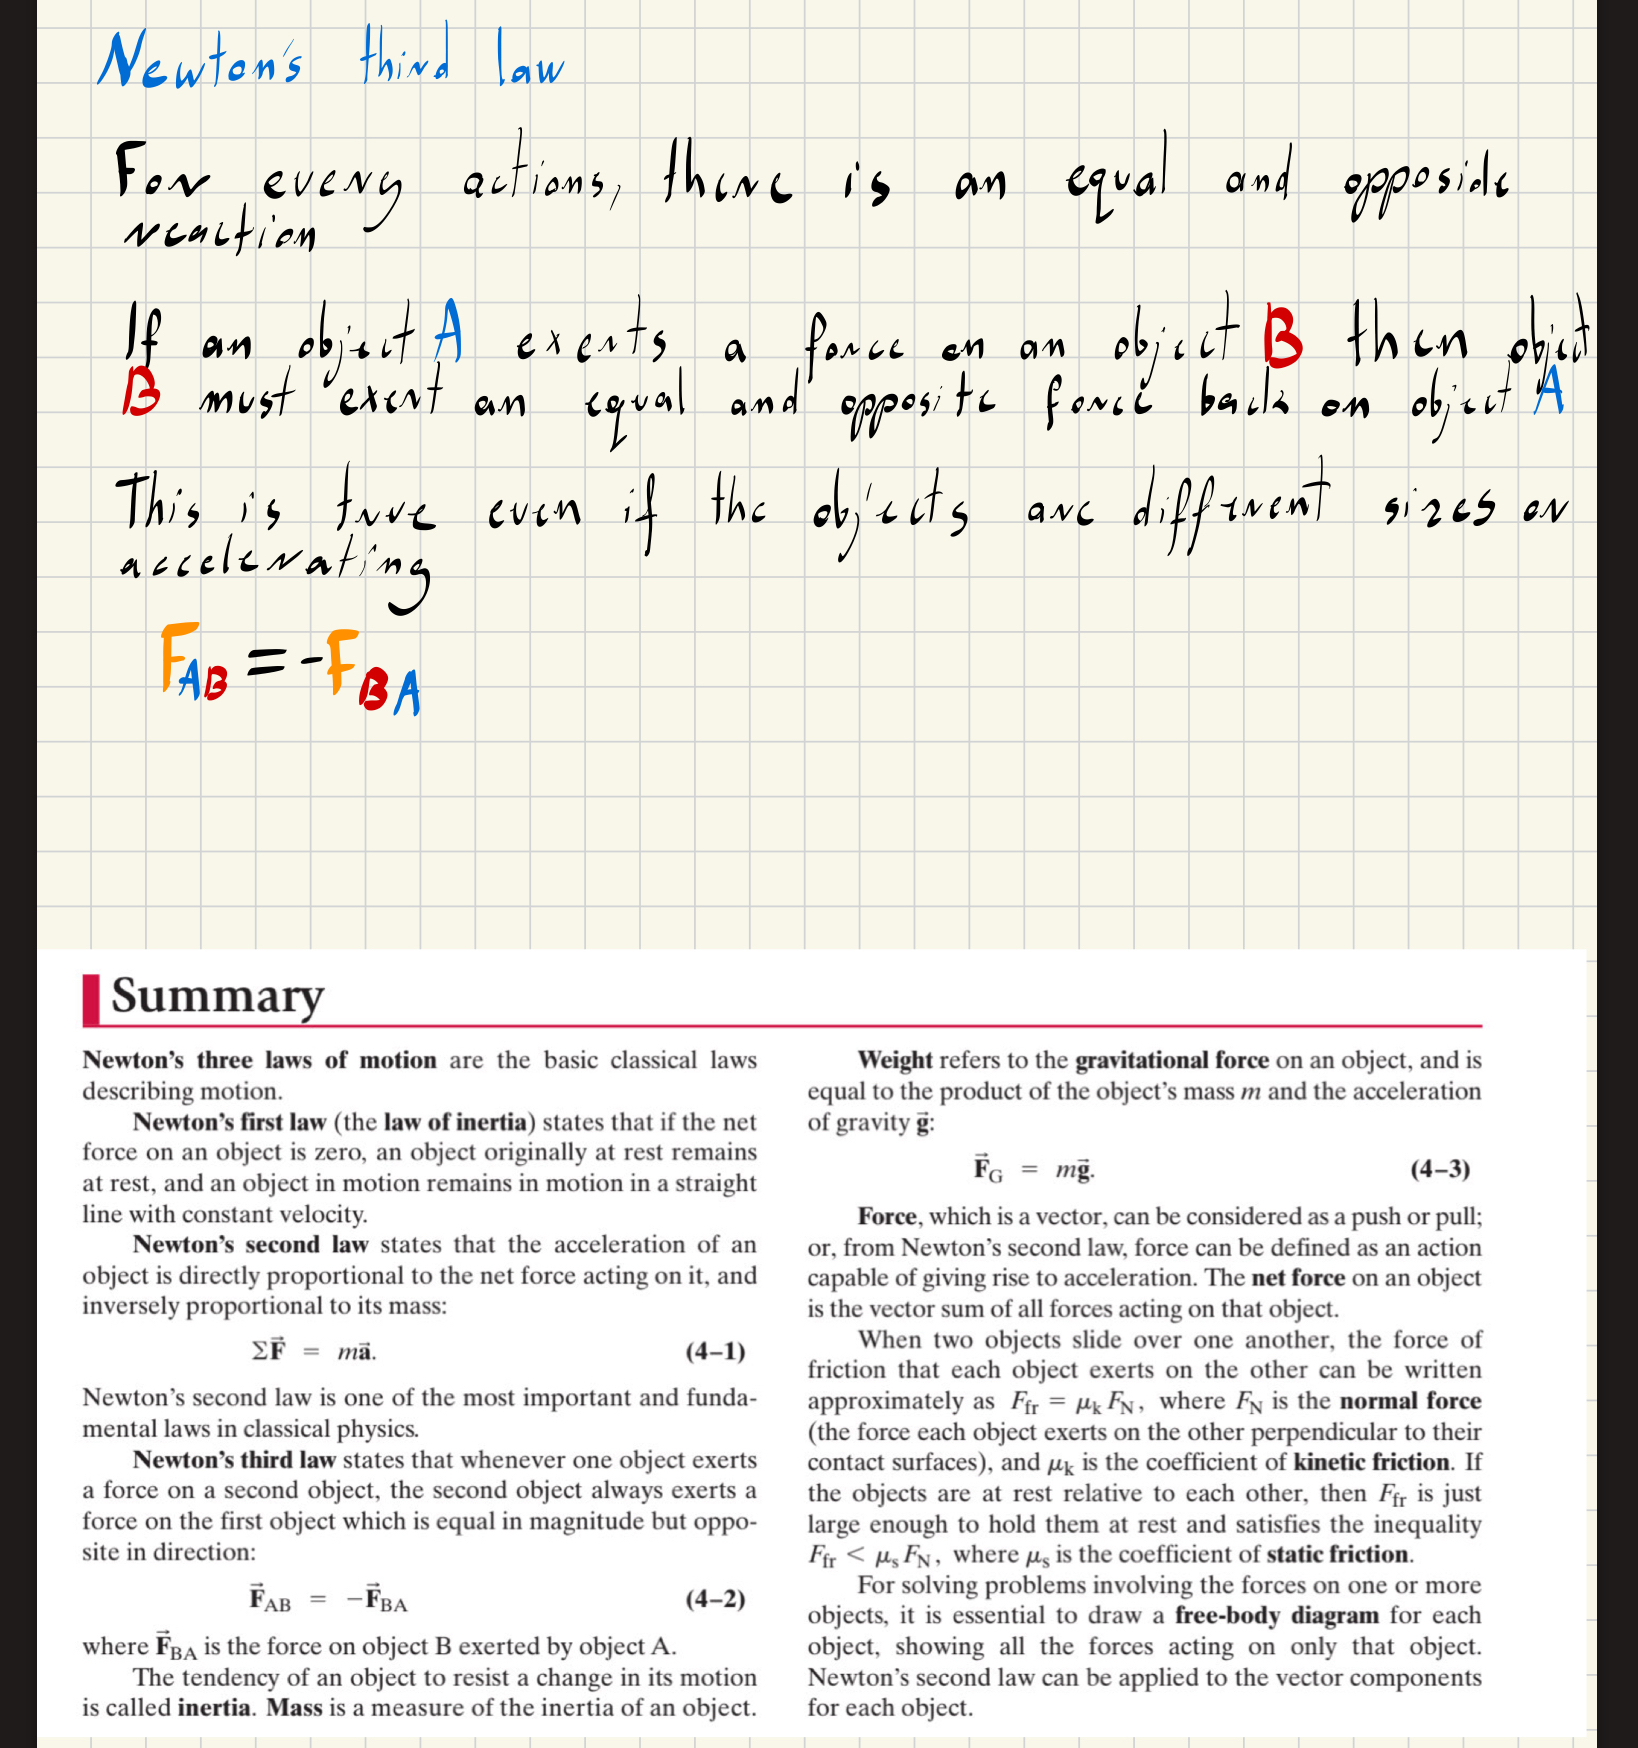 Newton's third law
For every actions, there is an equal and opposide
reaction
If an object A exerts a force on an object B then object
B must exert an equal and opposite force back on object A
This is true even if the objects are different sizes or
accelerating
F_AB = -F_BA
Summary
Newton's three laws of motion are the basic classical laws
describing motion.
Newton's first law (the law of inertia) states that if the net
force on an object is zero, an object originally at rest remains
at rest, and an object in motion remains in motion in a straight
line with constant velocity.
Newton's second law states that the acceleration of an
object is directly proportional to the net force acting on it, and
inversely proportional to its mass:
ΣF⃗ = ma⃗. (4–1)
Newton's second law is one of the most important and funda-
mental laws in classical physics.
Newton's third law states that whenever one object exerts
a force on a second object, the second object always exerts a
force on the first object which is equal in magnitude but oppo-
site in direction:
F⃗_AB = −F⃗_BA (4–2)
where F⃗_BA is the force on object B exerted by object A.
The tendency of an object to resist a change in its motion
is called inertia. Mass is a measure of the inertia of an object.
Weight refers to the gravitational force on an object, and is
equal to the product of the object's mass m and the acceleration
of gravity g⃗:
F⃗_G = mg⃗. (4–3)
Force, which is a vector, can be considered as a push or pull;
or, from Newton's second law, force can be defined as an action
capable of giving rise to acceleration. The net force on an object
is the vector sum of all forces acting on that object.
When two objects slide over one another, the force of
friction that each object exerts on the other can be written
approximately as F_fr = μ_k F_N, where F_N is the normal force
(the force each object exerts on the other perpendicular to their
contact surfaces), and μ_k is the coefficient of kinetic friction. If
the objects are at rest relative to each other, then F_fr is just
large enough to hold them at rest and satisfies the inequality
F_fr < μ_s F_N, where μ_s is the coefficient of static friction.
For solving problems involving the forces on one or more
objects, it is essential to draw a free-body diagram for each
object, showing all the forces acting on only that object.
Newton's second law can be applied to the vector components
for each object.